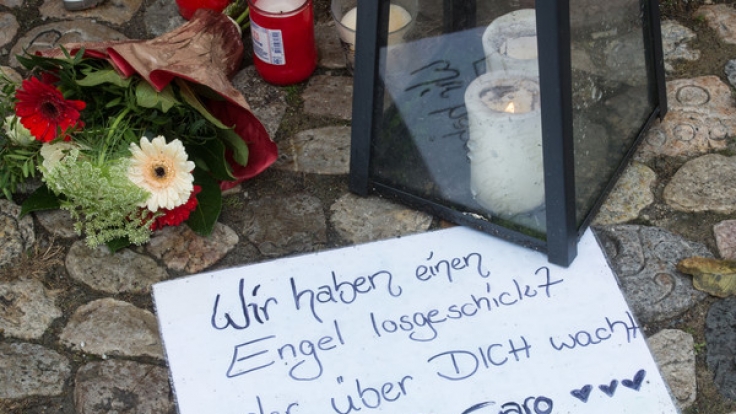 Wir haben einen
Engel losgeschickt
der über DICH wacht
Caro ♥♥♥